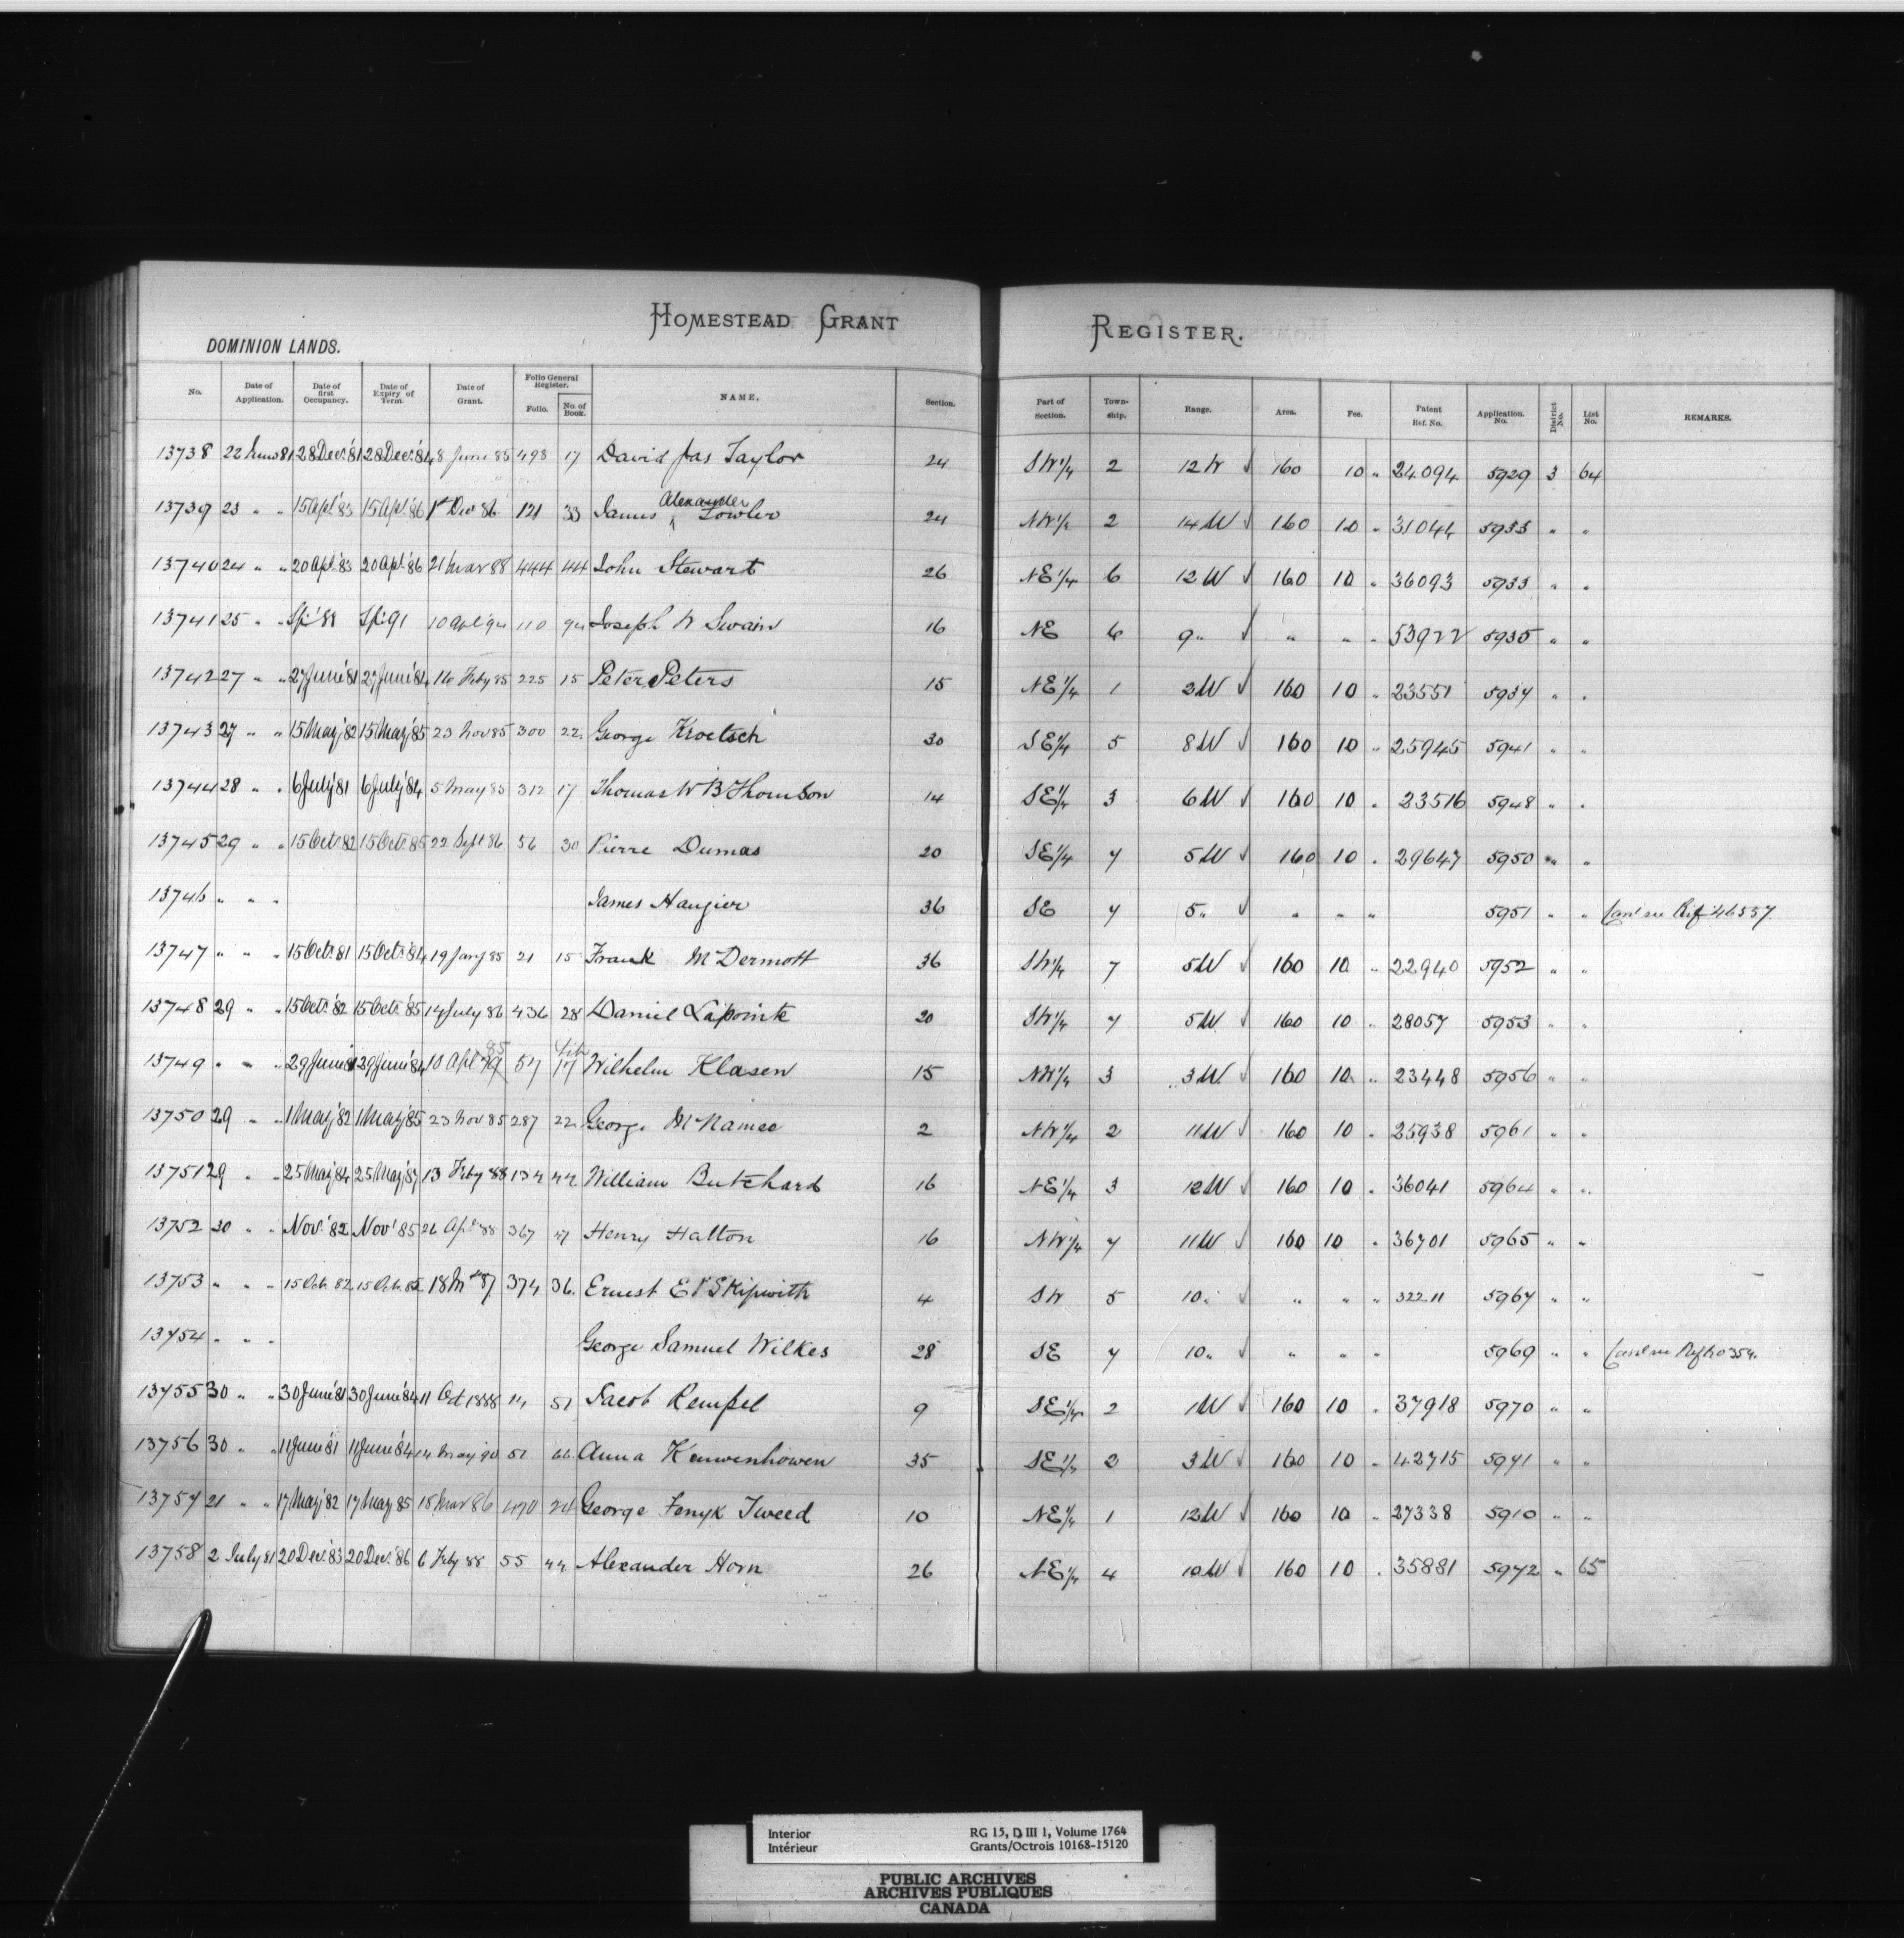 HOMESTEAD GRANT REGISTER.
DOMINION LANDS.
No. Date of Application. Date of first Occupancy. Date of Expiry of Term. Date of Grant. Folio General Register. Folio. No. of Book. NAME. Section. Part of Section. Town-ship. Range. Area. Fee. Patent Ref. No. Application. No. District No. List No. REMARKS.
13738 22 June 81 28 Dec '81 28 Dec '84 8 June 85 498 17 David Jas Taylor 24 SW 1/4 2 12 W √ 160 10 " 24094 5929 3 64
13739 23 " " 15 Apl '83 15 Apl '86 1st Dec 86 121 33 James Alexander Fowler 24 NW 1/4 2 14 W √ 160 10 " 31044 5933 " "
13740 24 " " 20 Apl '83 20 Apl '86 21 Mar 88 444 44 John Stewart 26 NE 1/4 6 12 W √ 160 10 " 36093 5933 " "
13741 25 " " '88 91 10 Apl 94 110 94 Joseph W Swain 16 NE 6 9 " √ " " " 53922 5935 " "
13742 27 " " 27 June '81 27 June '84 16 Feby 85 225 15 Peter Peters 15 NE 1/4 1 2 W √ 160 10 " 23551 5937 " "
13743 27 " " 15 May '82 15 May '85 23 Nov 85 300 22 George Kroetsch 30 SE 1/4 5 8 W √ 160 10 " 25945 5941 " "
13744 28 " " 6 July '81 6 July '84 5 May 85 312 17 Thomas W B Thomson 14 SE 1/4 3 6 W √ 160 10 " 23516 5948 " "
13745 29 " " 15 Oct. 82 15 Oct. 85 22 Sept 86 56 30 Pierre Dumas 20 SE 1/4 7 5 W √ 160 10 " 29647 5950 " "
13746 " " " James Haugier 36 SE 7 5 " √ " " " 5951 " " Canl see Ref 46557
13747 " " " 15 Oct. 81 15 Oct. 84 19 Jany 85 21 15 Frank McDermott 36 SW 1/4 7 5 W √ 160 10 " 22940 5952 " "
13748 29 " " 15 Oct. 82 15 Oct. 85 14 July 86 436 28 Daniel Lapointe 20 SW 1/4 7 5 W √ 160 10 " 28057 5953 " "
13749 " " " 29 June 81 29 June '84 10 Apl 85 57 17 Wilhelm Klasen 15 NW 1/4 3 3 W √ 160 10 " 23448 5956 " "
13750 29 " " 1 May '82 1 May '85 23 Nov 85 287 22 George McNamee 2 NW 1/4 2 11 W √ 160 10 " 25938 5961 " "
13751 29 " " 25 May '84 25 May '87 13 Feby 88 134 44 William Butchard 16 NE 1/4 3 12 W √ 160 10 " 36041 5964 " "
13752 30 " " Nov. '82 Nov '85 26 Apl 88 367 47 Henry Hatton 16 NW 1/4 7 11 W √ 160 10 " 36701 5965 " "
13753 " " " 15 Oct. 82 15 Oct. 85 18 87 374 36 Ernest E P Skipwith 4 SW 5 10 " √ " " " 32211 5967 " "
13754 " " " George Samuel Wilkes 28 SE 7 10 " √ " " " 5969 " " Canl see Ref
13755 30 " " 30 June '81 30 June '84 11 Oct 1888 14 51 Jacob Rempel 9 SE 1/4 2 1 W √ 160 10 " 37918 5970 " "
13756 30 " " 11 June '81 11 June '84 14 May 90 51 66 Anna Kauwenhowen 35 SE 1/4 2 3 W √ 160 10 " 42715 5971 " "
13757 21 " " 17 May '82 17 May 85 15 Mar 86 470 24 George Tweed 10 NE 1/4 1 12 W √ 160 10 " 27338 5910 " "
13758 2 July 81 20 Dec. '83 20 Dec. '86 6 Feby 88 55 44 Alexander Horn 26 NE 1/4 4 10 W √ 160 10 " 35881 5972 " 65
Interior RG 15, D III 1, Volume 1764
Intérieur Grants/Octrois 10168-15120
PUBLIC ARCHIVES
ARCHIVES PUBLIQUES
CANADA